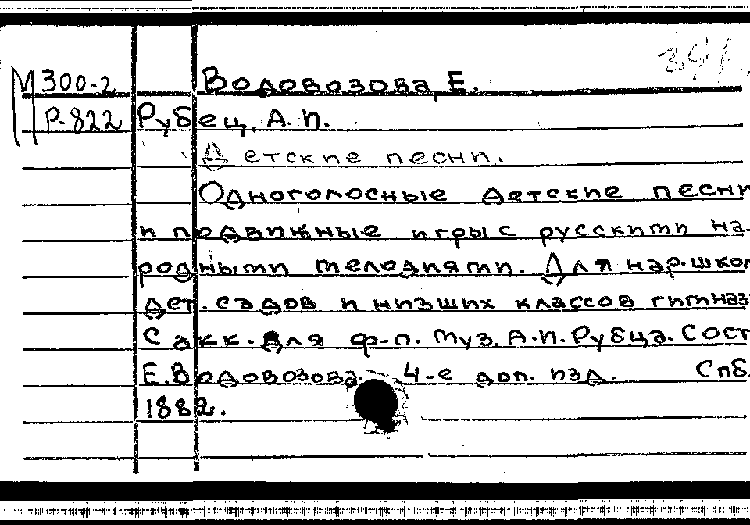 М 300-2 Водовозова, Е.
Р-822 Рубец, А. П.
Детские песни.
Одноголосные детские песни
и подвижные игры с русскими на-
родными мелодиями. Для нар. школ
дет. садов и низших классов гимназ
С акк. для ф-п. Муз. А. И. Рубца. Сост
Е. Водовозова. 4-е доп. изд. Спб.
1882.